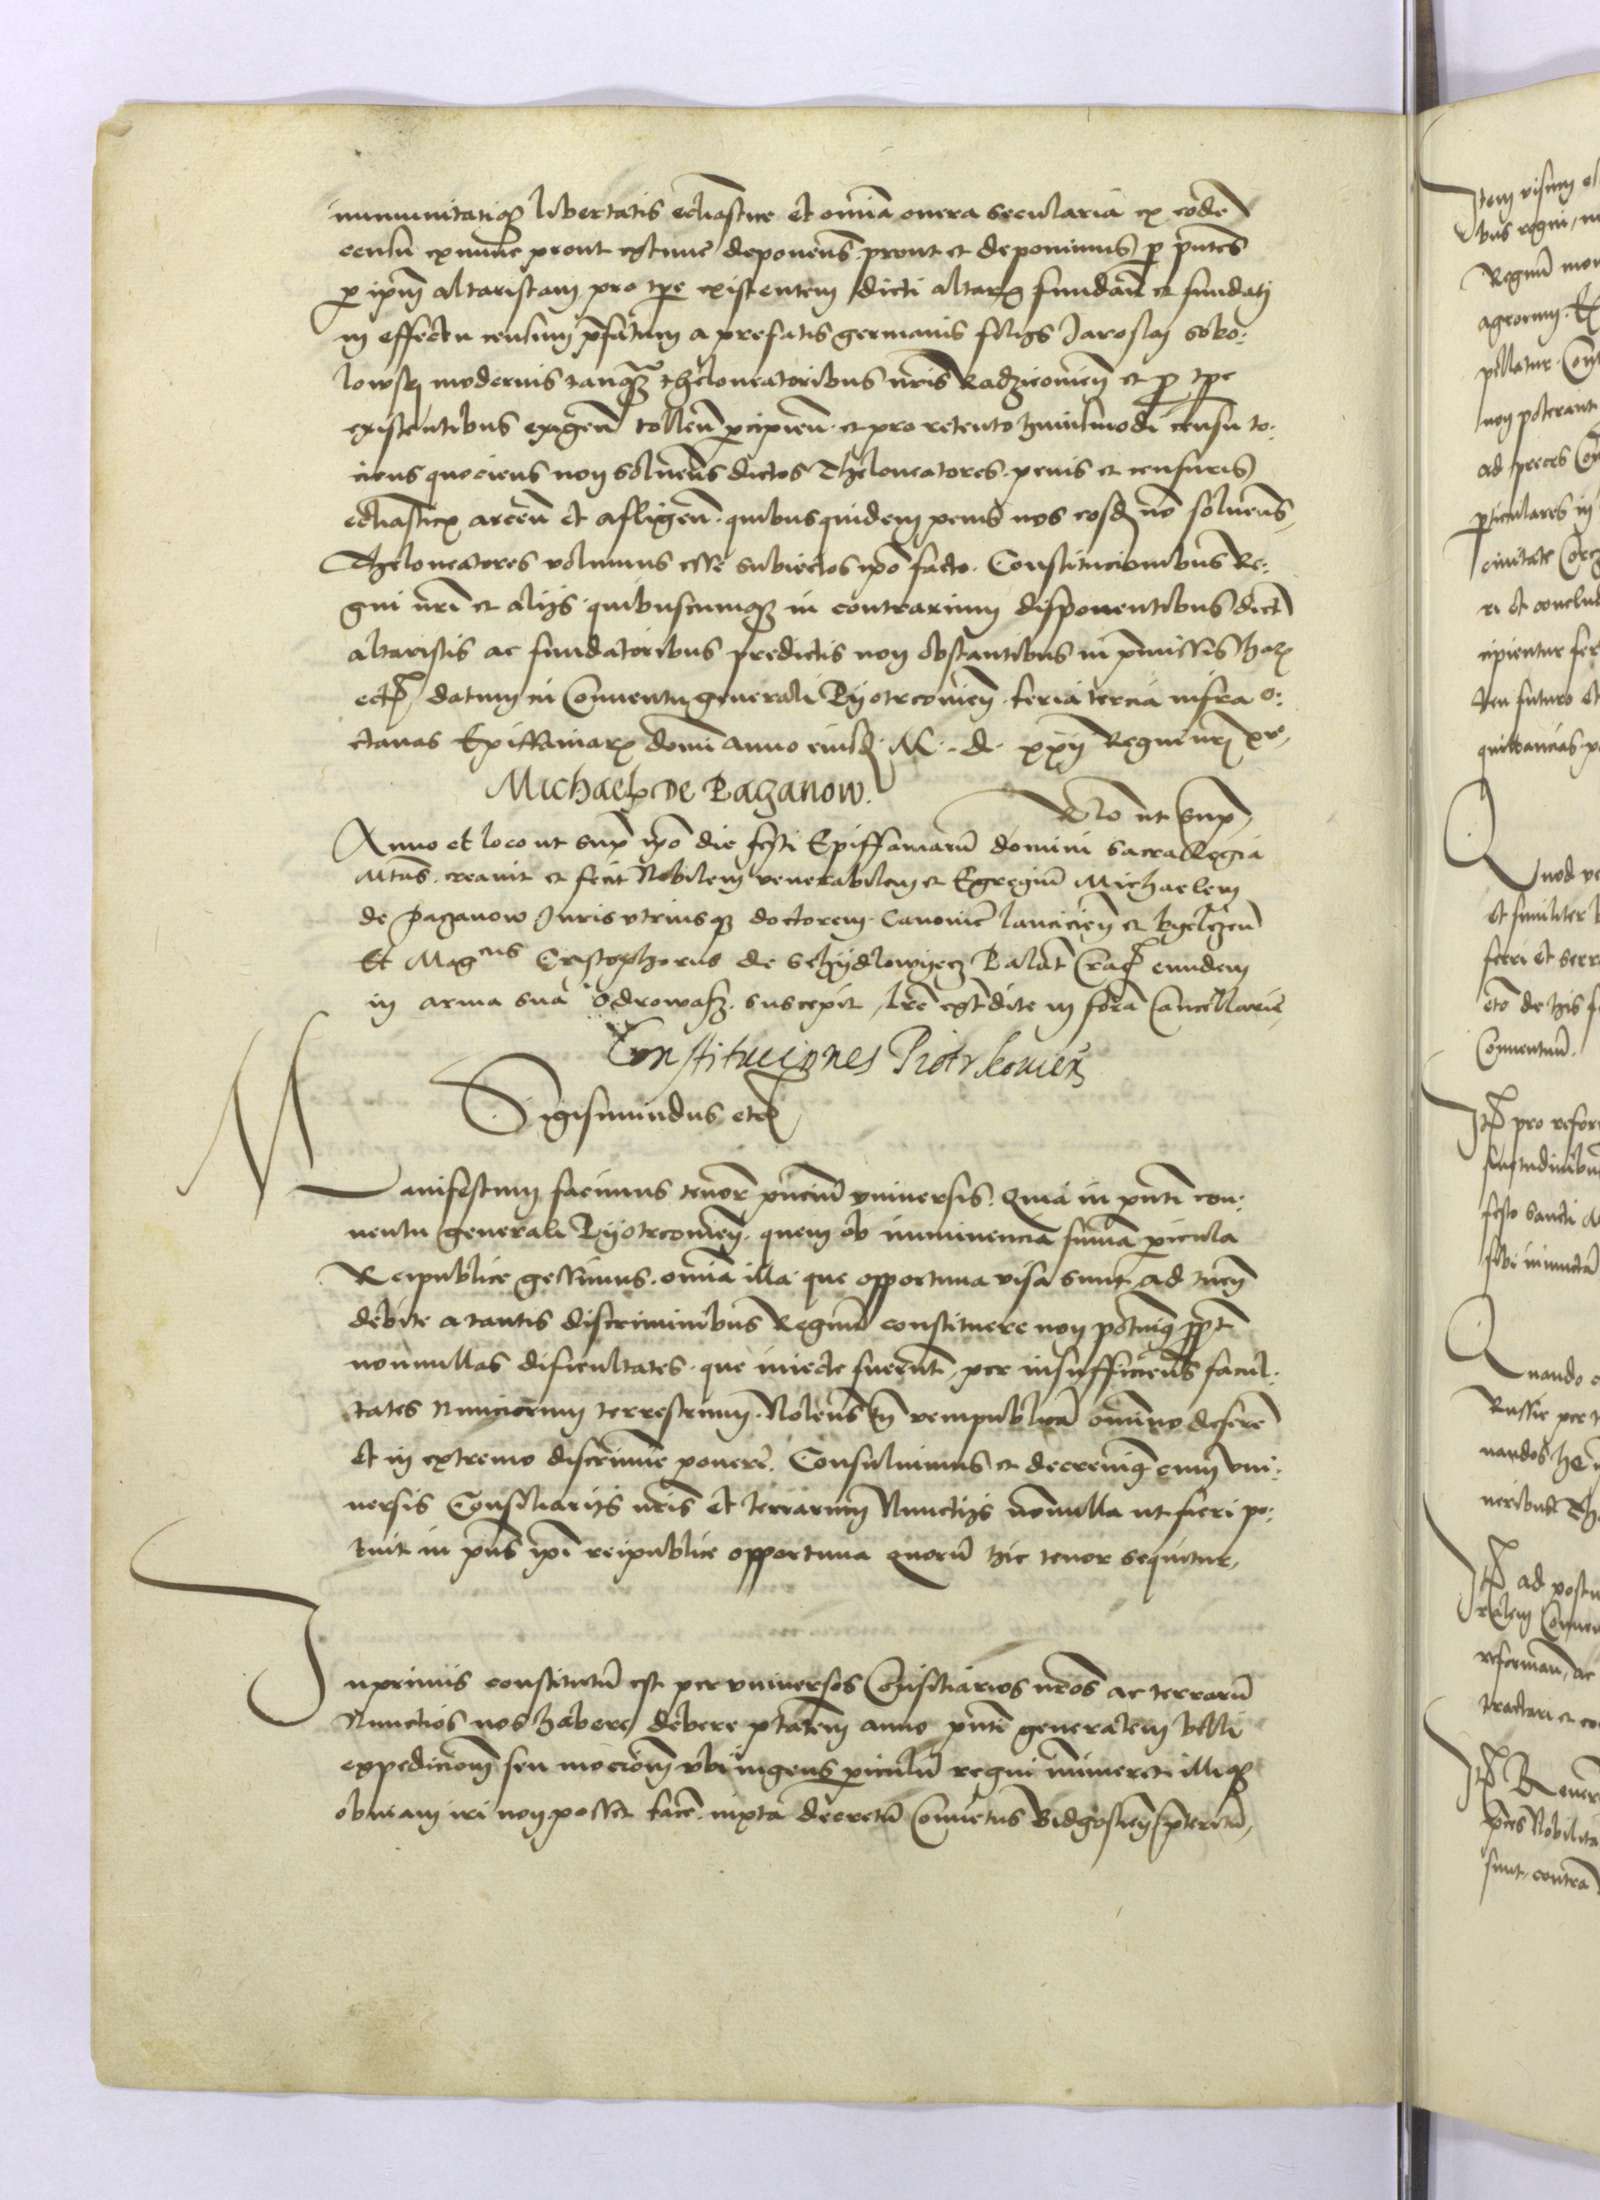 immunitatiqz libertatis ecclastice et omnia onera secularia ex eode
censu exnunc prout extunc deponens prout et deponimus per pntes
per ipm altaristam pro tpe existentem dicti altaris fundan et fundati
in effectu censum pfatum a prefatis germanis filijs Jaroslaj Soko:
lowskj modernis tanqz theloneatoribus nris Radzieiowien et pro tpe
existentibus exigen tollen percipien et pro retento huiusmodi censu to:
ciens quociens non solvens dictos Theloneatores penis et censuris
eccliasticis arcen et afligen quibusquidem penis nos eosd no solvens
Theloneatores volumus esse subiectos ipo facto. Constitucionibus Re:
gni nri et alijs quibuscumqz in contrarium disponentibus dict
altaristis ac fundatoribus predictis non obstantibus in pmissis har
etc datum in Conventu generali Pijotrcovien feria tercia infra o:
ctavas Epiffaniarz domi anno eiusd M d xxij Regni nri xvo
Michael De Paganow.
Rlo ut sup
Anno et loco ut sup ipo die festi Epiffaniaru domini sacra Regia
Mtas creavit et fecit Nobilem venerabilem et Egregiu Michaelem
de Paganow Juris utriusqz doctorem Canonic lancicien et kyelczen
Et Magcus Cristophorus de Schijdlowijecz Palat Crac eundem
in arma sua Odrowasz suscepit lre extdite in fora Cancellarie
Constituciones Piotrkovien
Sigismundus etc
Manifestum facimus tenore pnciu universis. Quia in pnti con:
ventu generali Pijotrcovien quem ob imminencia suma pericula
Reipublice gessimus omia illa que opportuna visa sunt ad tuen
debite a tantis discriminibus Regnu constituere non potuimq ppt
nonnullas dificultates que iniecte fuerunt per insufficiens facul:
tates nunciorum terrestrium. Nolens tn rempublica omnino desere
et in extremo discrimine ponere. Consuluimus et decrevimq cum uni:
versis Consiliarijs nris et terrarum Nunctijs nonnulla ut fieri po:
tuit in pns ipi reipublice opportuna quoru hic tenor sequitur
Inprimis constitutu est per universos Consiliarios nros ac terraru
Nunctios nos habere debere ptatem anno pnte generalem belli
expedicionem seu mocionem ubi ingens periculu regni immineret illiqz
obviam iri non posset facere iuxta decretu Conventus Bidgostien pteritu